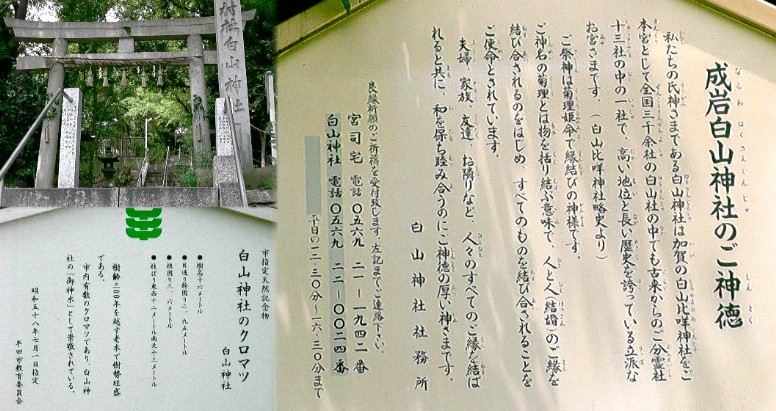 村社白山神社
成岩白山神社のご神徳
ならわ はくさんじんじゃ しんとく
私たちの氏神さまである白山神社は加賀の白山比咩神社をご
本宮として全国三千余社の白山社の中でも古来からのご分霊社
十三社の中の一社で、高い地位と長い歴史を誇っている立派な
お宮さまです。（白山比咩神社略史より）
ご祭神は菊理姫命で縁結びの神様です。
ご神名の菊理とは物を括り結ぶ意味で、人と人（結婚）のご縁を
結び合されるのをはじめ、すべてのものを結び合されることを
ご使命とされています。
夫婦、家族、友達、お隣りなど、人々のすべてのご縁を結ば
れると共に、和を保ち睦み合うのにご神徳の厚い神さまです。
白山神社社務所
良縁祈願のご祈祷を受付致します。左記までご連絡下さい。
宮司宅 電話〇五六九 二一-一九四二番
白山神社 電話〇五六九 二二-〇〇二四番
平日の一二・三〇分～一六・三〇分まで
市指定天然記念物
白山神社のクロマツ
白山神社
●樹高十六メートル
●目通り幹囲り三、八五メートル
●根囲り六、六メートル
●枝ばり東西十二メートル南北十三メートル
樹齢三〇〇年を越す老木で樹勢旺盛
である。
市内有数のクロマツであり、白山神
社の「御神木」として崇敬されている。
昭和五十八年七月一日指定
半田市教育委員会